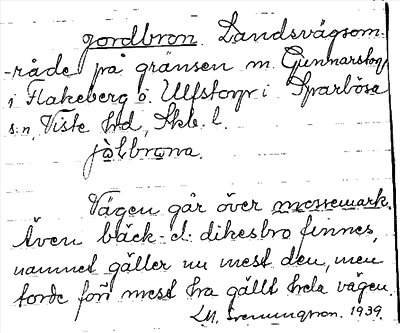 jordbron. Landsvägsom-
-råde på gränsen m. Gunnarstorp
i Flakeberg o. Ulfstorp i Sparlösa
s:n, Viste hd, Skb. l.
jòlbrona.
Vägen går över mossemark.
Även bäck- el. dikesbro finnes,
namnet gäller nu mest den, men
torde förr mest ha gällt hela vägen.
1939.